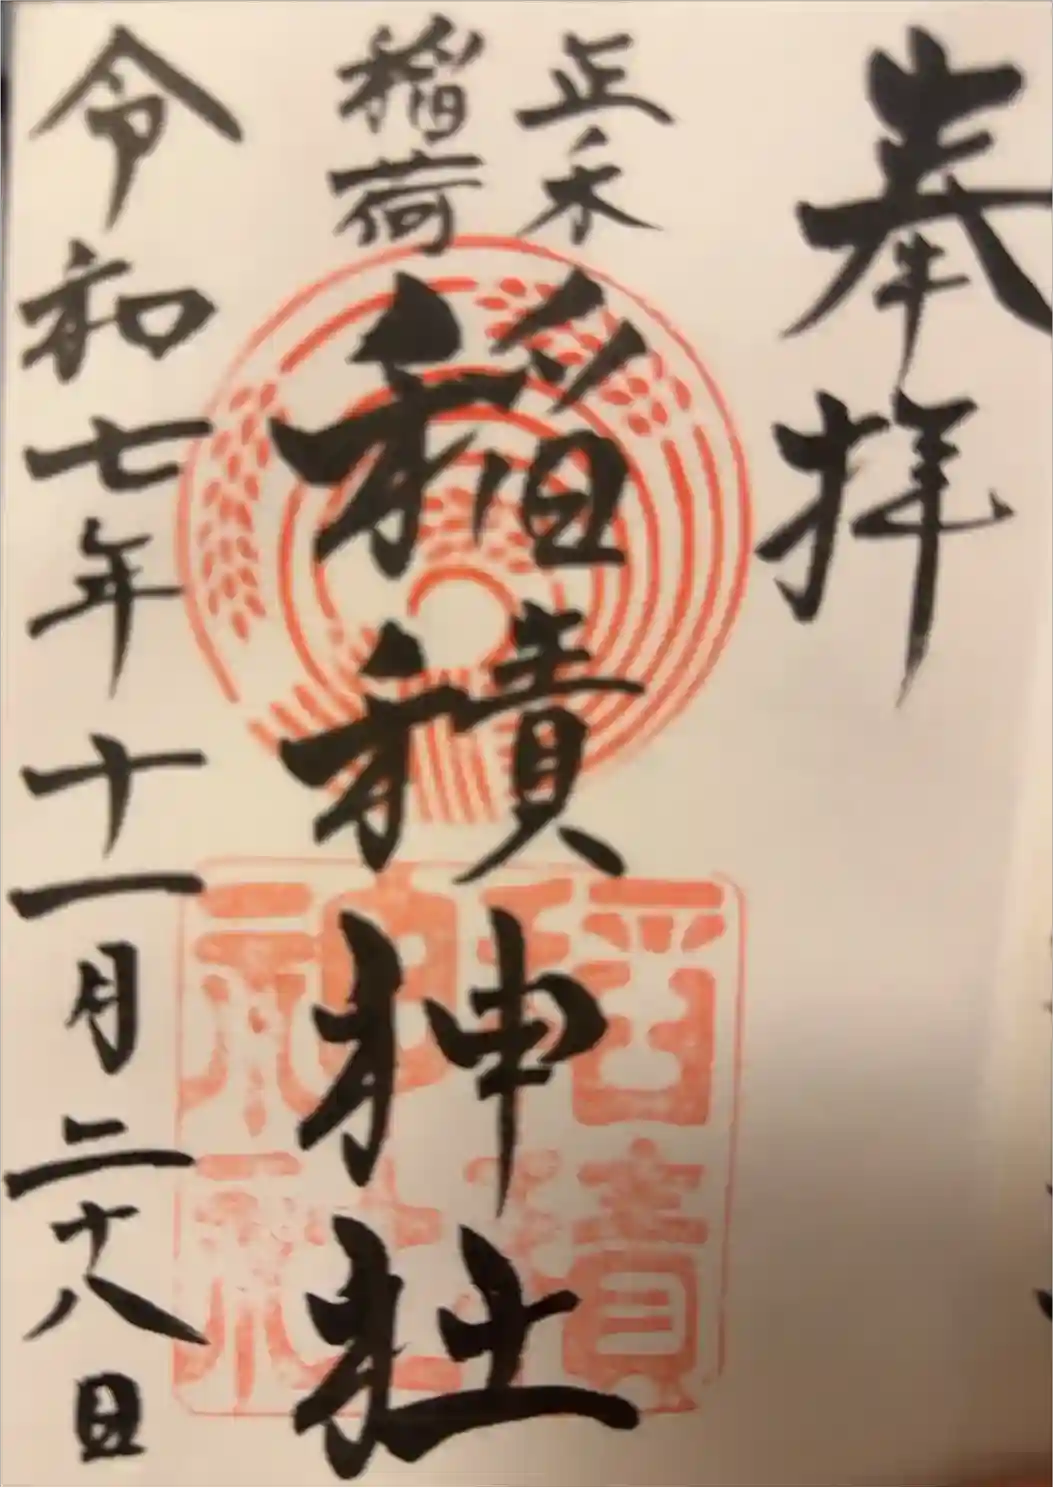 奉拝
正ノ木
稲荷
稲積神社
稲積
神社
令和七年十一月二十八日